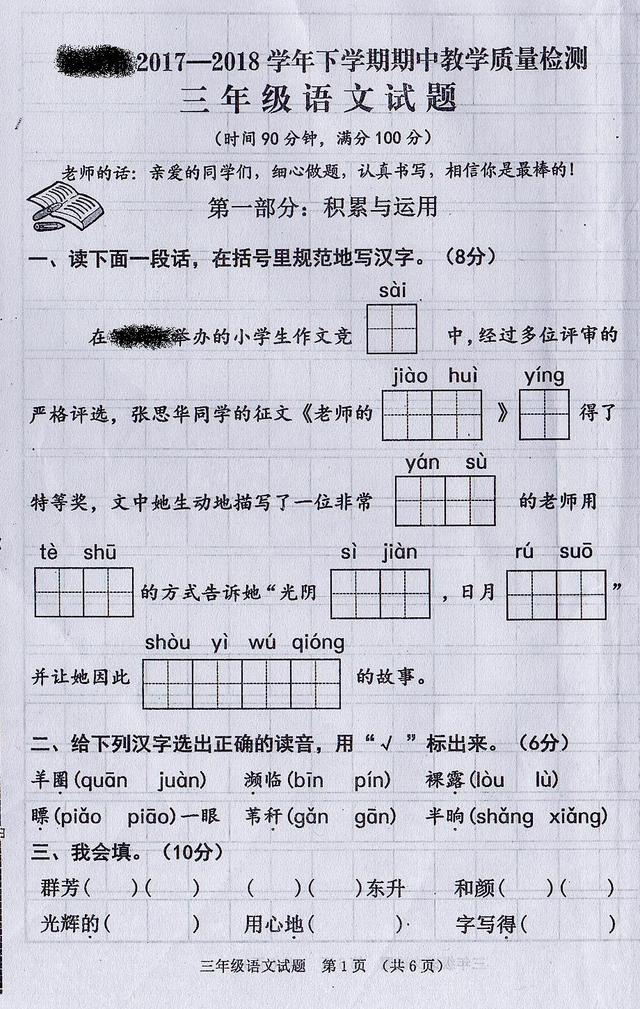 2017—2018 学年下学期期中教学质量检测
三年级语文试题
（时间 90 分钟，满分 100 分）
老师的话：亲爱的同学们，细心做题，认真书写，相信你是最棒的！
第一部分：积累与运用
一、读下面一段话，在括号里规范地写汉字。（8分）
sài
在 举办的小学生作文竞 中，经过多位评审的
jiào huì yíng
严格评选，张思华同学的征文《老师的 》 得了
yán sù
特等奖，文中她生动地描写了一位非常 的老师用
tè shū sì jiàn rú suō
的方式告诉她“光阴 ，日月 ”
shòu yì wú qióng
并让她因此 的故事。
二、给下列汉字选出正确的读音，用“√ ”标出来。（6分）
羊圈(quān juàn) 濒临(bīn pín) 裸露(lòu lù)
瞟(piǎo piāo)一眼 苇秆(gǎn gān) 半晌(shǎng xiǎng)
三、我会填。（10分）
群芳( )( ) ( )( )东升 和颜( )( )
光辉的( ) 用心地( ) 字写得( )
三年级语文试题 第 1 页 （共 6 页）